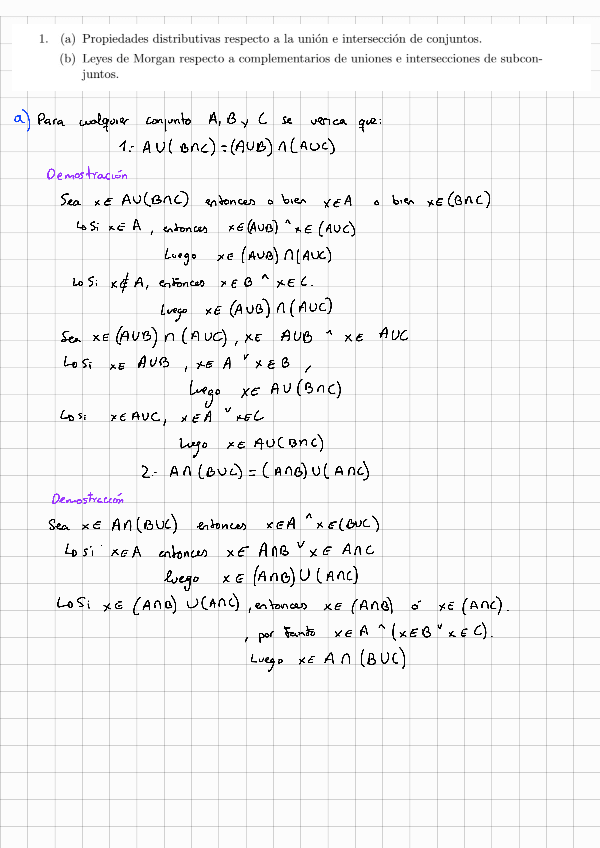 1. (a) Propiedades distributivas respecto a la unión e intersección de conjuntos.
(b) Leyes de Morgan respecto a complementarios de uniones e intersecciones de subcon-
juntos.
a) Para cualquier conjunto A, B y C se verica que:
1.- A∪(B∩C)=(A∪B)∩(A∪C)
Demostración
Sea x∈ A∪(B∩C) entonces o bien x∈A o bien x∈(B∩C)
↳ Si x∈ A, entonces x∈(A∪B) ^ x∈(A∪C)
Luego x∈ (A∪B)∩(A∪C)
↳ Si x∉A, entonces x∈B ^ x∈C.
Luego x∈ (A∪B)∩(A∪C)
Sea x∈(A∪B)∩(A∪C), x∈ A∪B ^ x∈ A∪C
↳ Si x∈ A∪B, x∈A ∨ x∈B,
Luego x∈ A∪(B∩C)
↳ Si x∈A∪C, x∈A ∨ x∈C
Lugo x∈ A∪(B∩C)
2.- A∩(B∪C)=(A∩B)∪(A∩C)
Demostración
Sea x∈ A∩(B∪C) entonces x∈A ^ x∈(B∪C)
↳ Si x∈A entonces x∈ A∩B ∨ x∈ A∩C
luego x∈ (A∩B)∪(A∩C)
↳ Si x∈ (A∩B)∪(A∩C), entonces x∈ (A∩B) ó x∈(A∩C).
, por tanto x∈A ^ (x∈B ∨ x∈C).
Luego x∈ A∩(B∪C)